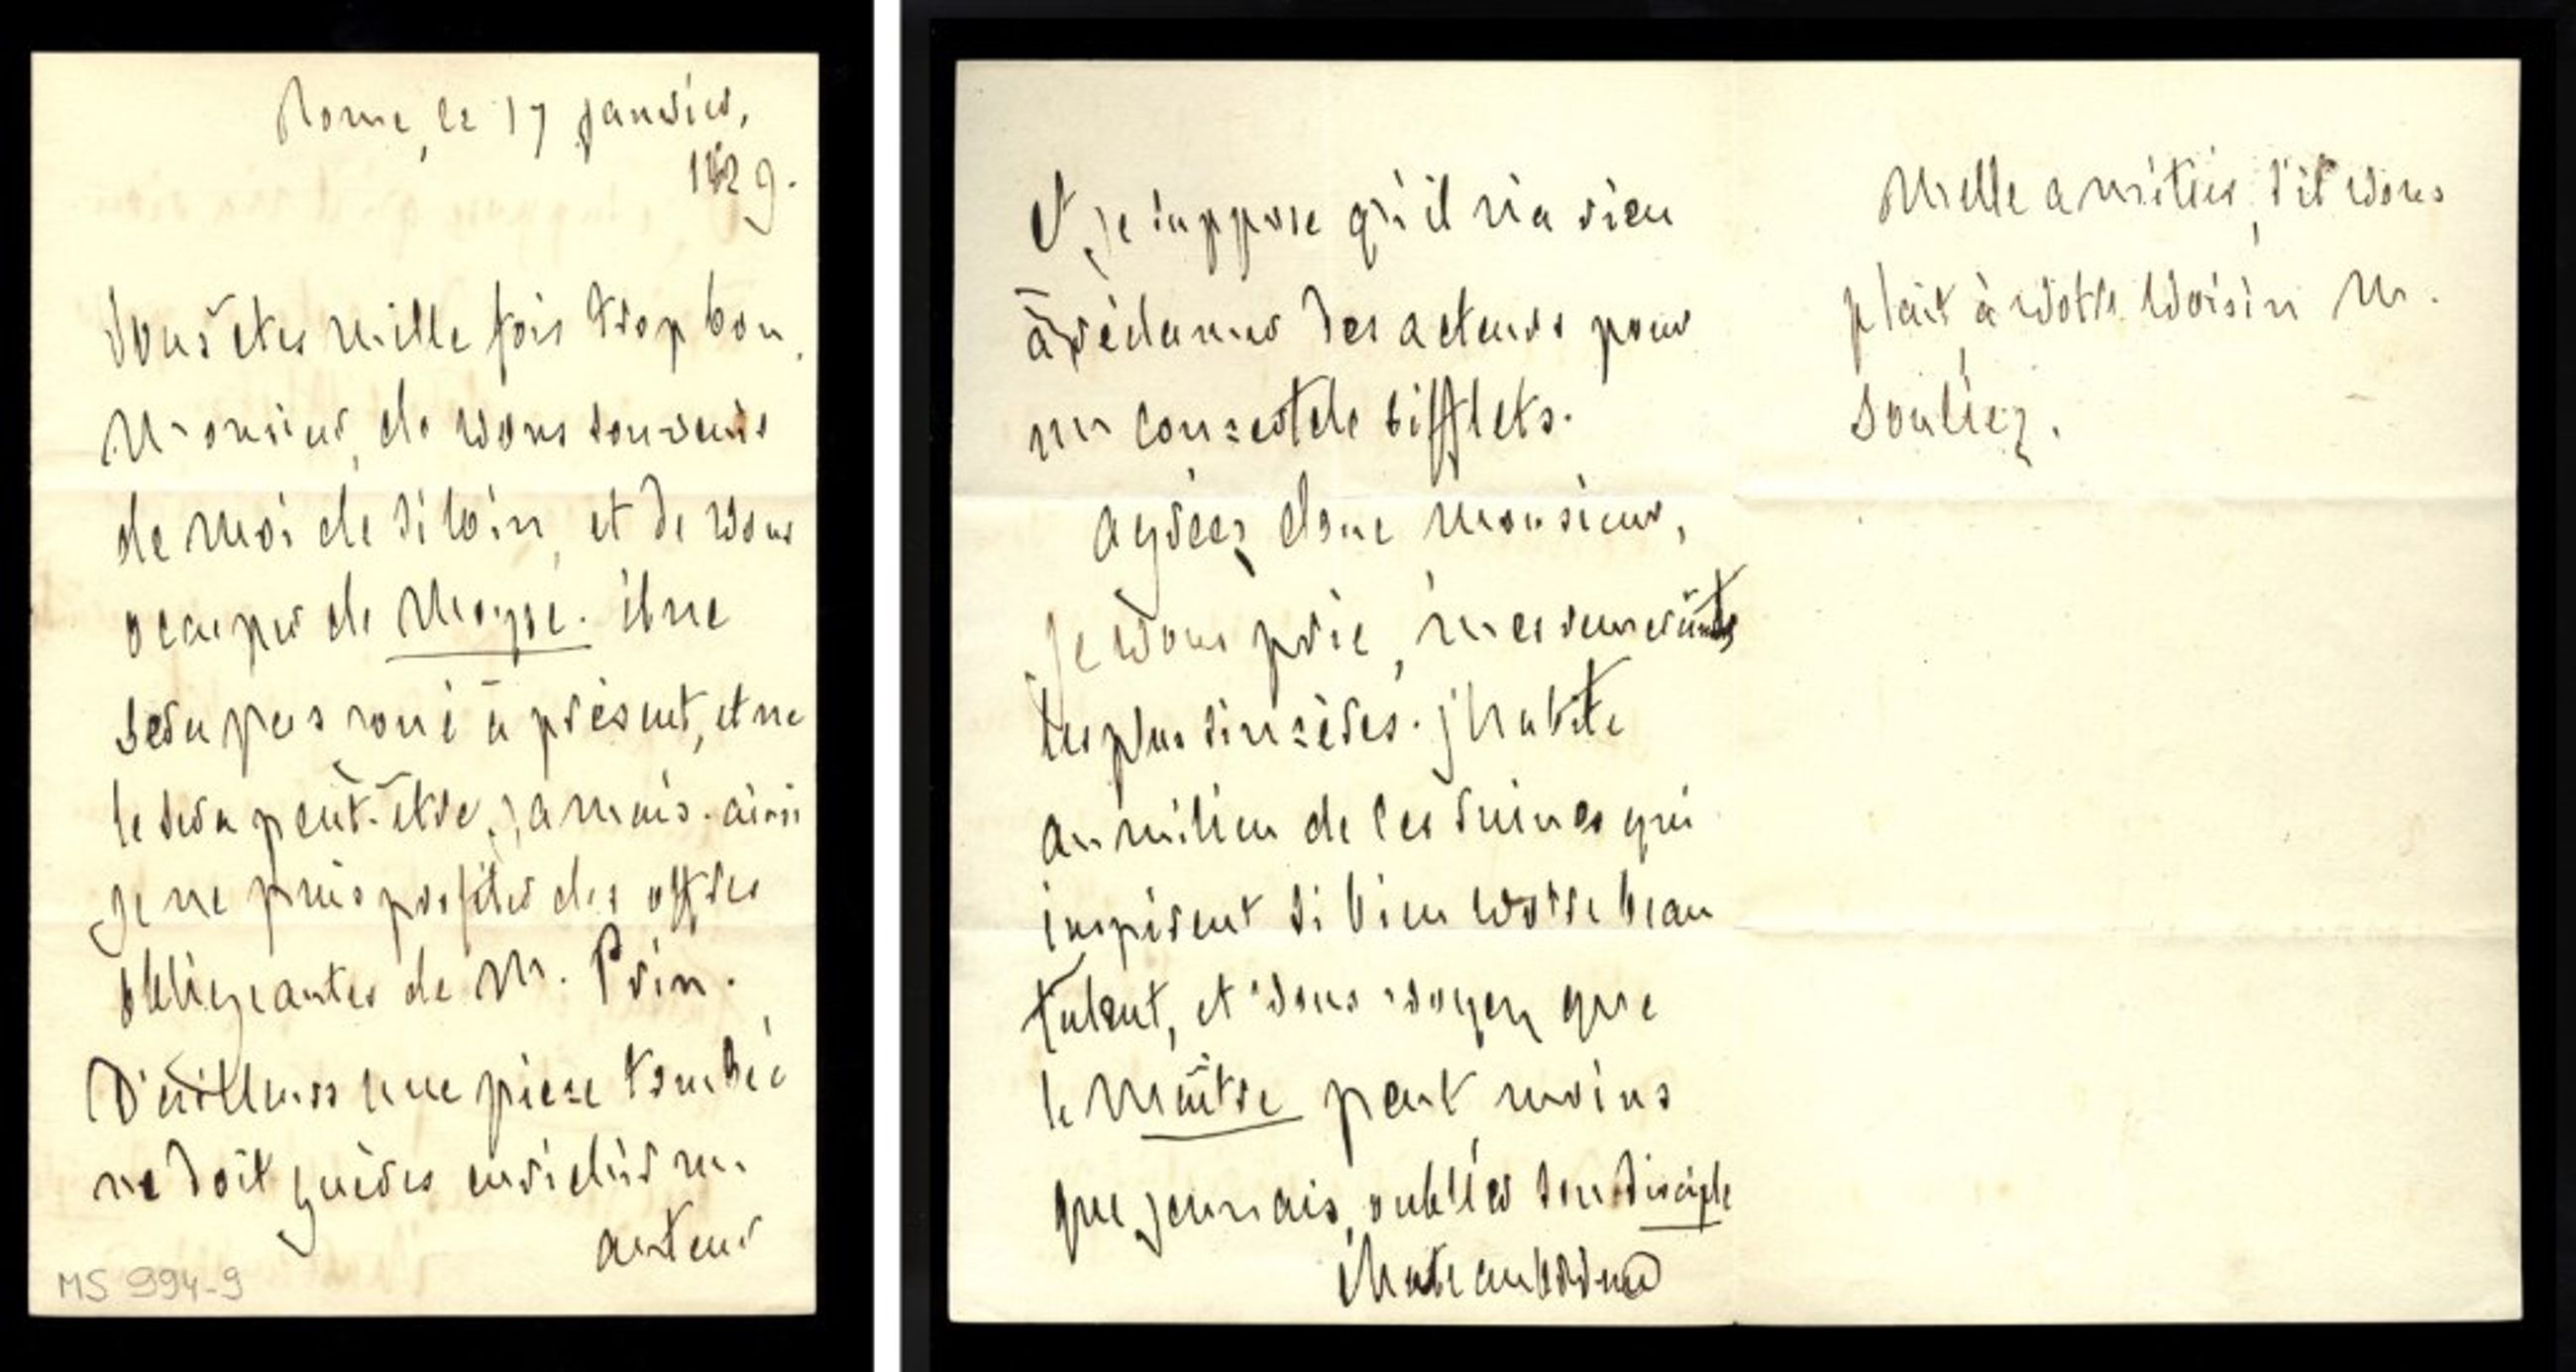 Rome, le 17 janvier,
1829.
Vous êtes mille fois trop bon,
Monsieur, de vous souvenir
de moi de si loin, et de vous
occuper de Moyse. il ne
sera pas joué à présent, et ne
le sera peut-être jamais. ainsi
je ne puis profiter des offres
obligeantes de M. Prin.
D'ailleurs une pièce tombée
ne doit guères enrichir un
auteur
MS 994-9
et je suppose qu'il n'a rien
à réclamer des acteurs pour
un concert de sifflets.
agréez donc Monsieur,
je vous prie, mes remerciments
les plus sincères. j'habite
au milieu de ces ruines qui
inspirent si bien votre beau
talent, et vous voyez que
le Maître peut moins
que jamais, oublier son disciple
Chateaubriand
Mille amitiés, s'il vous
plait à votre voisin M.
Souliez.